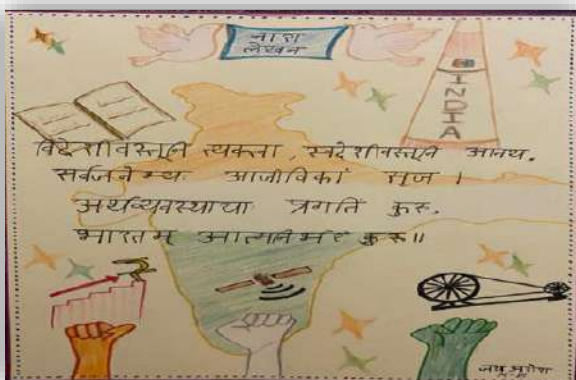 नारा
लेखन
INDIA
विदेशीवस्तूनि त्यक्त्वा, स्वदेशीवस्तूनि आनय.
सर्वजनेभ्यः आजीविकां सृज ।
अर्थव्यवस्थाया प्रगति कुरु.
भारतम् आत्मनिर्भर कुरु॥